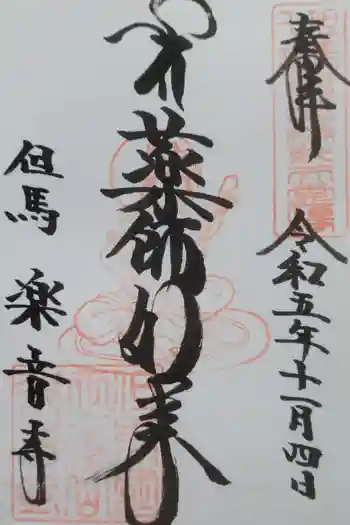 奉拝
令和五年十一月四日
薬師如来
但馬 楽音寺